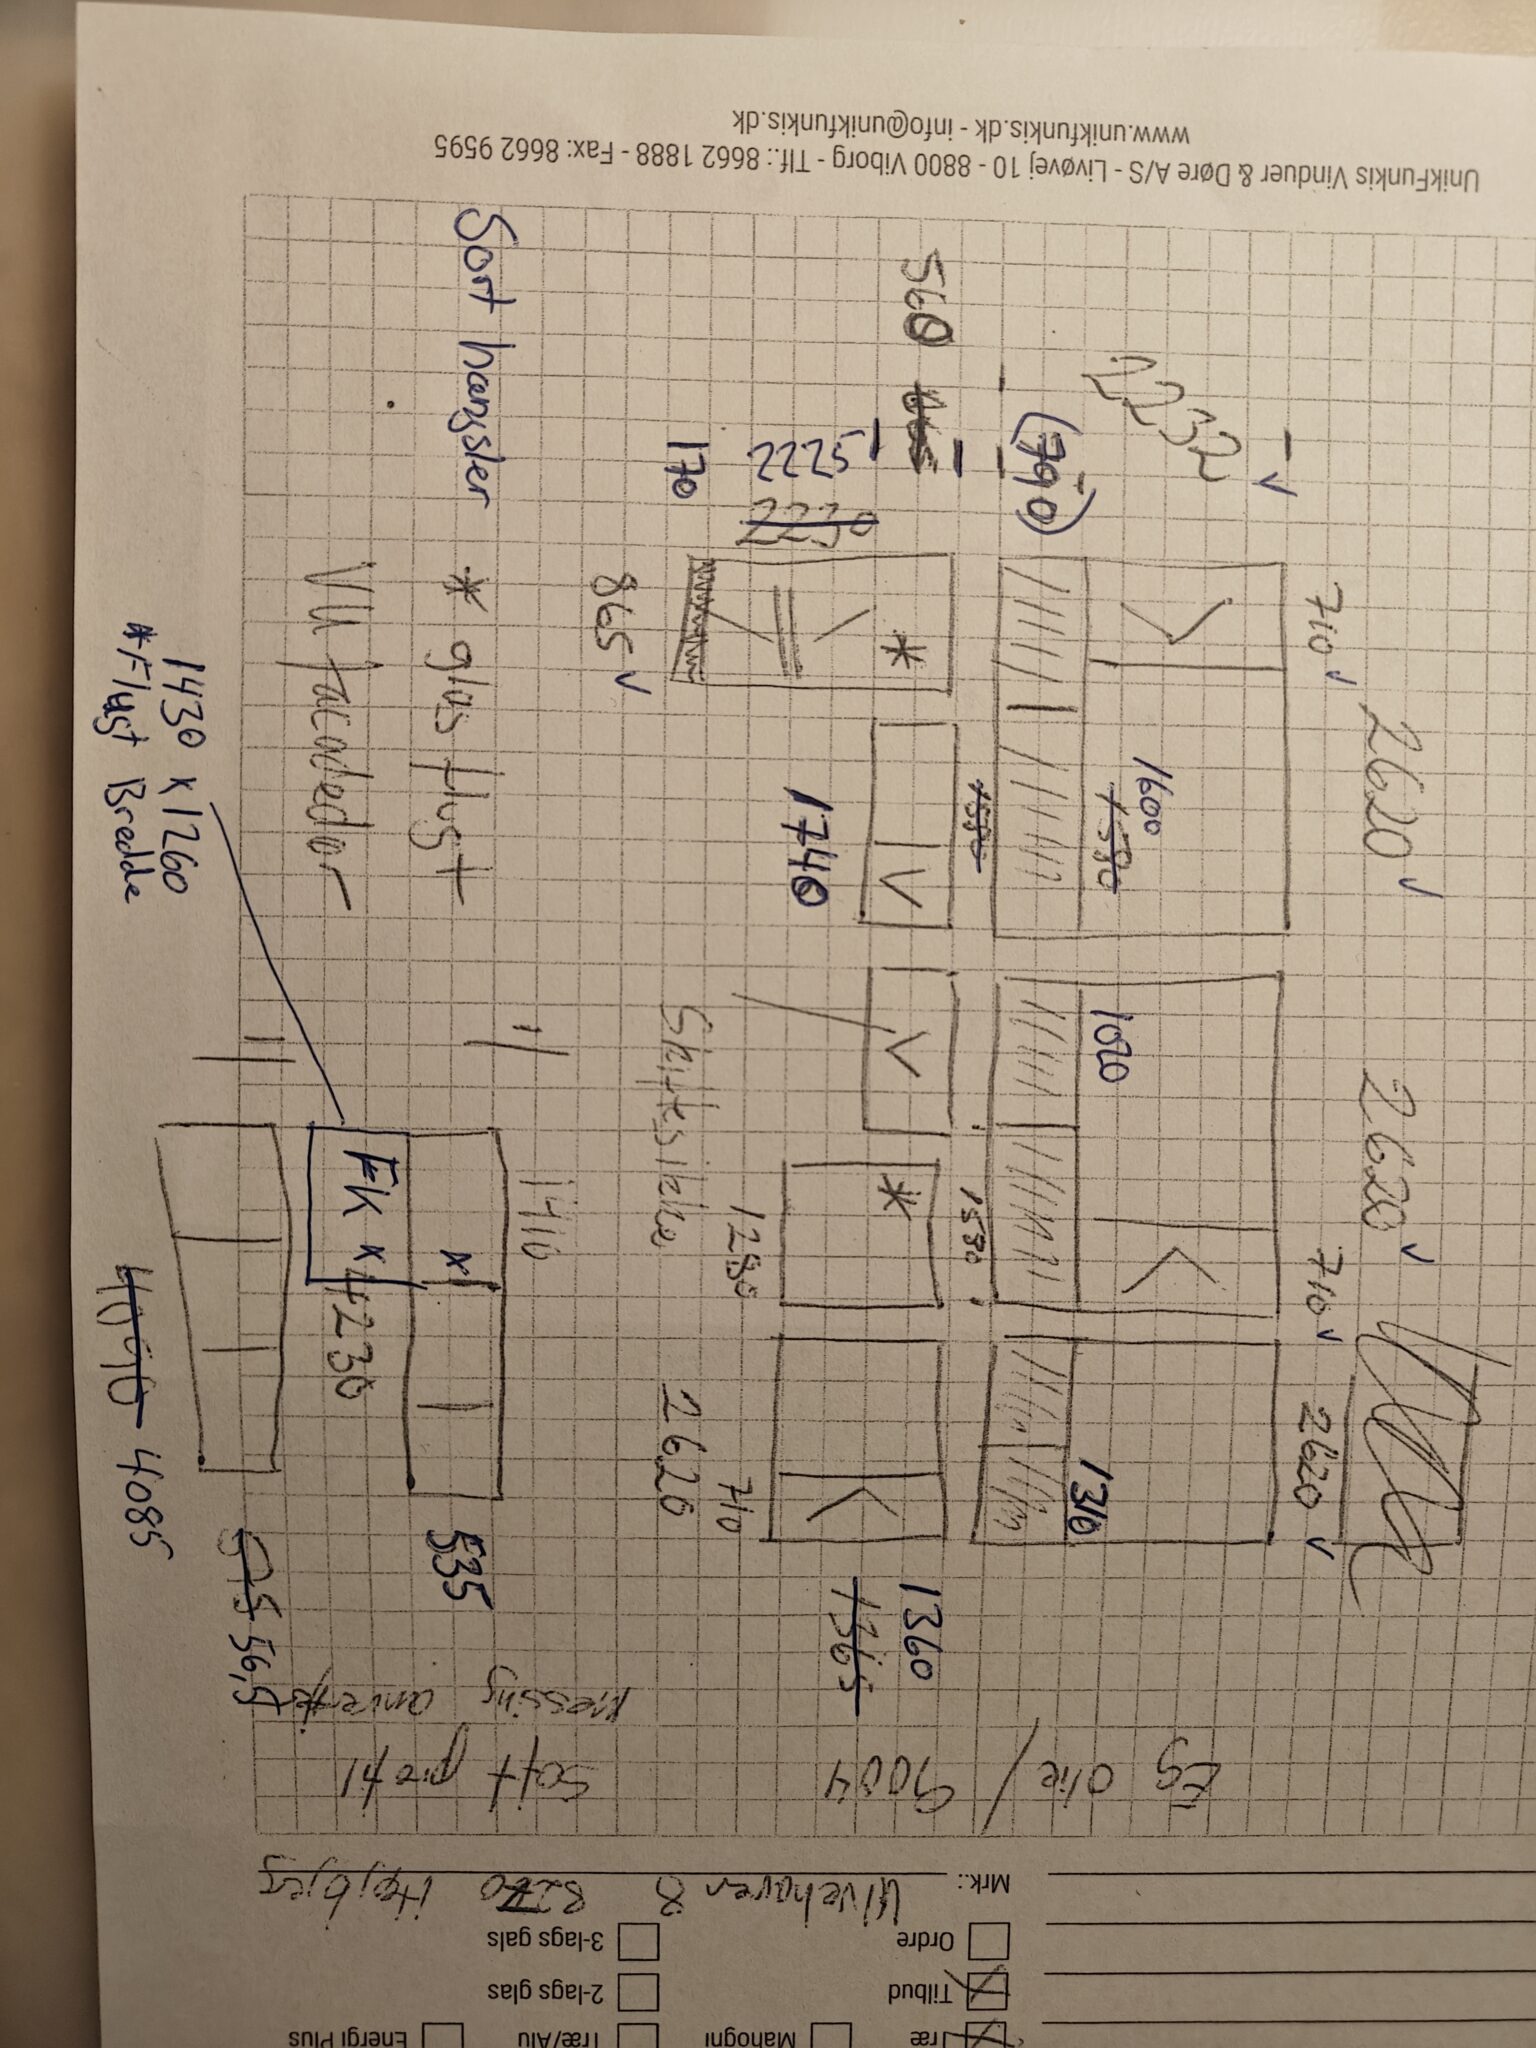 Træ
Mahogni
Træ/Alu
Energi Plus
Tilbud
2-lags glas
Ordre
3-lags gals
Mrk.: Ulvehaven 8 8270 Højbjerg
Eg olie / 9004
Soft profil
Messing
2620 2620
710 710 2620
2232
1600
1580
1020
1310
(790)
1580
1580
560
1360
1365
2225
2230
170
1740
1280
710
865
Skiftesikke
2620
Sort hængsler * glas flugt
VU facadedør
1410
x
535
FK x
4230
1430 x 1260
*Flugt Bredde
4085
575 56,5
UnikFunkis Vinduer & Døre A/S - Livøvej 10 - 8800 Viborg - Tlf.: 8662 1888 - Fax: 8662 9595
www.unikfunkis.dk - info@unikfunkis.dk